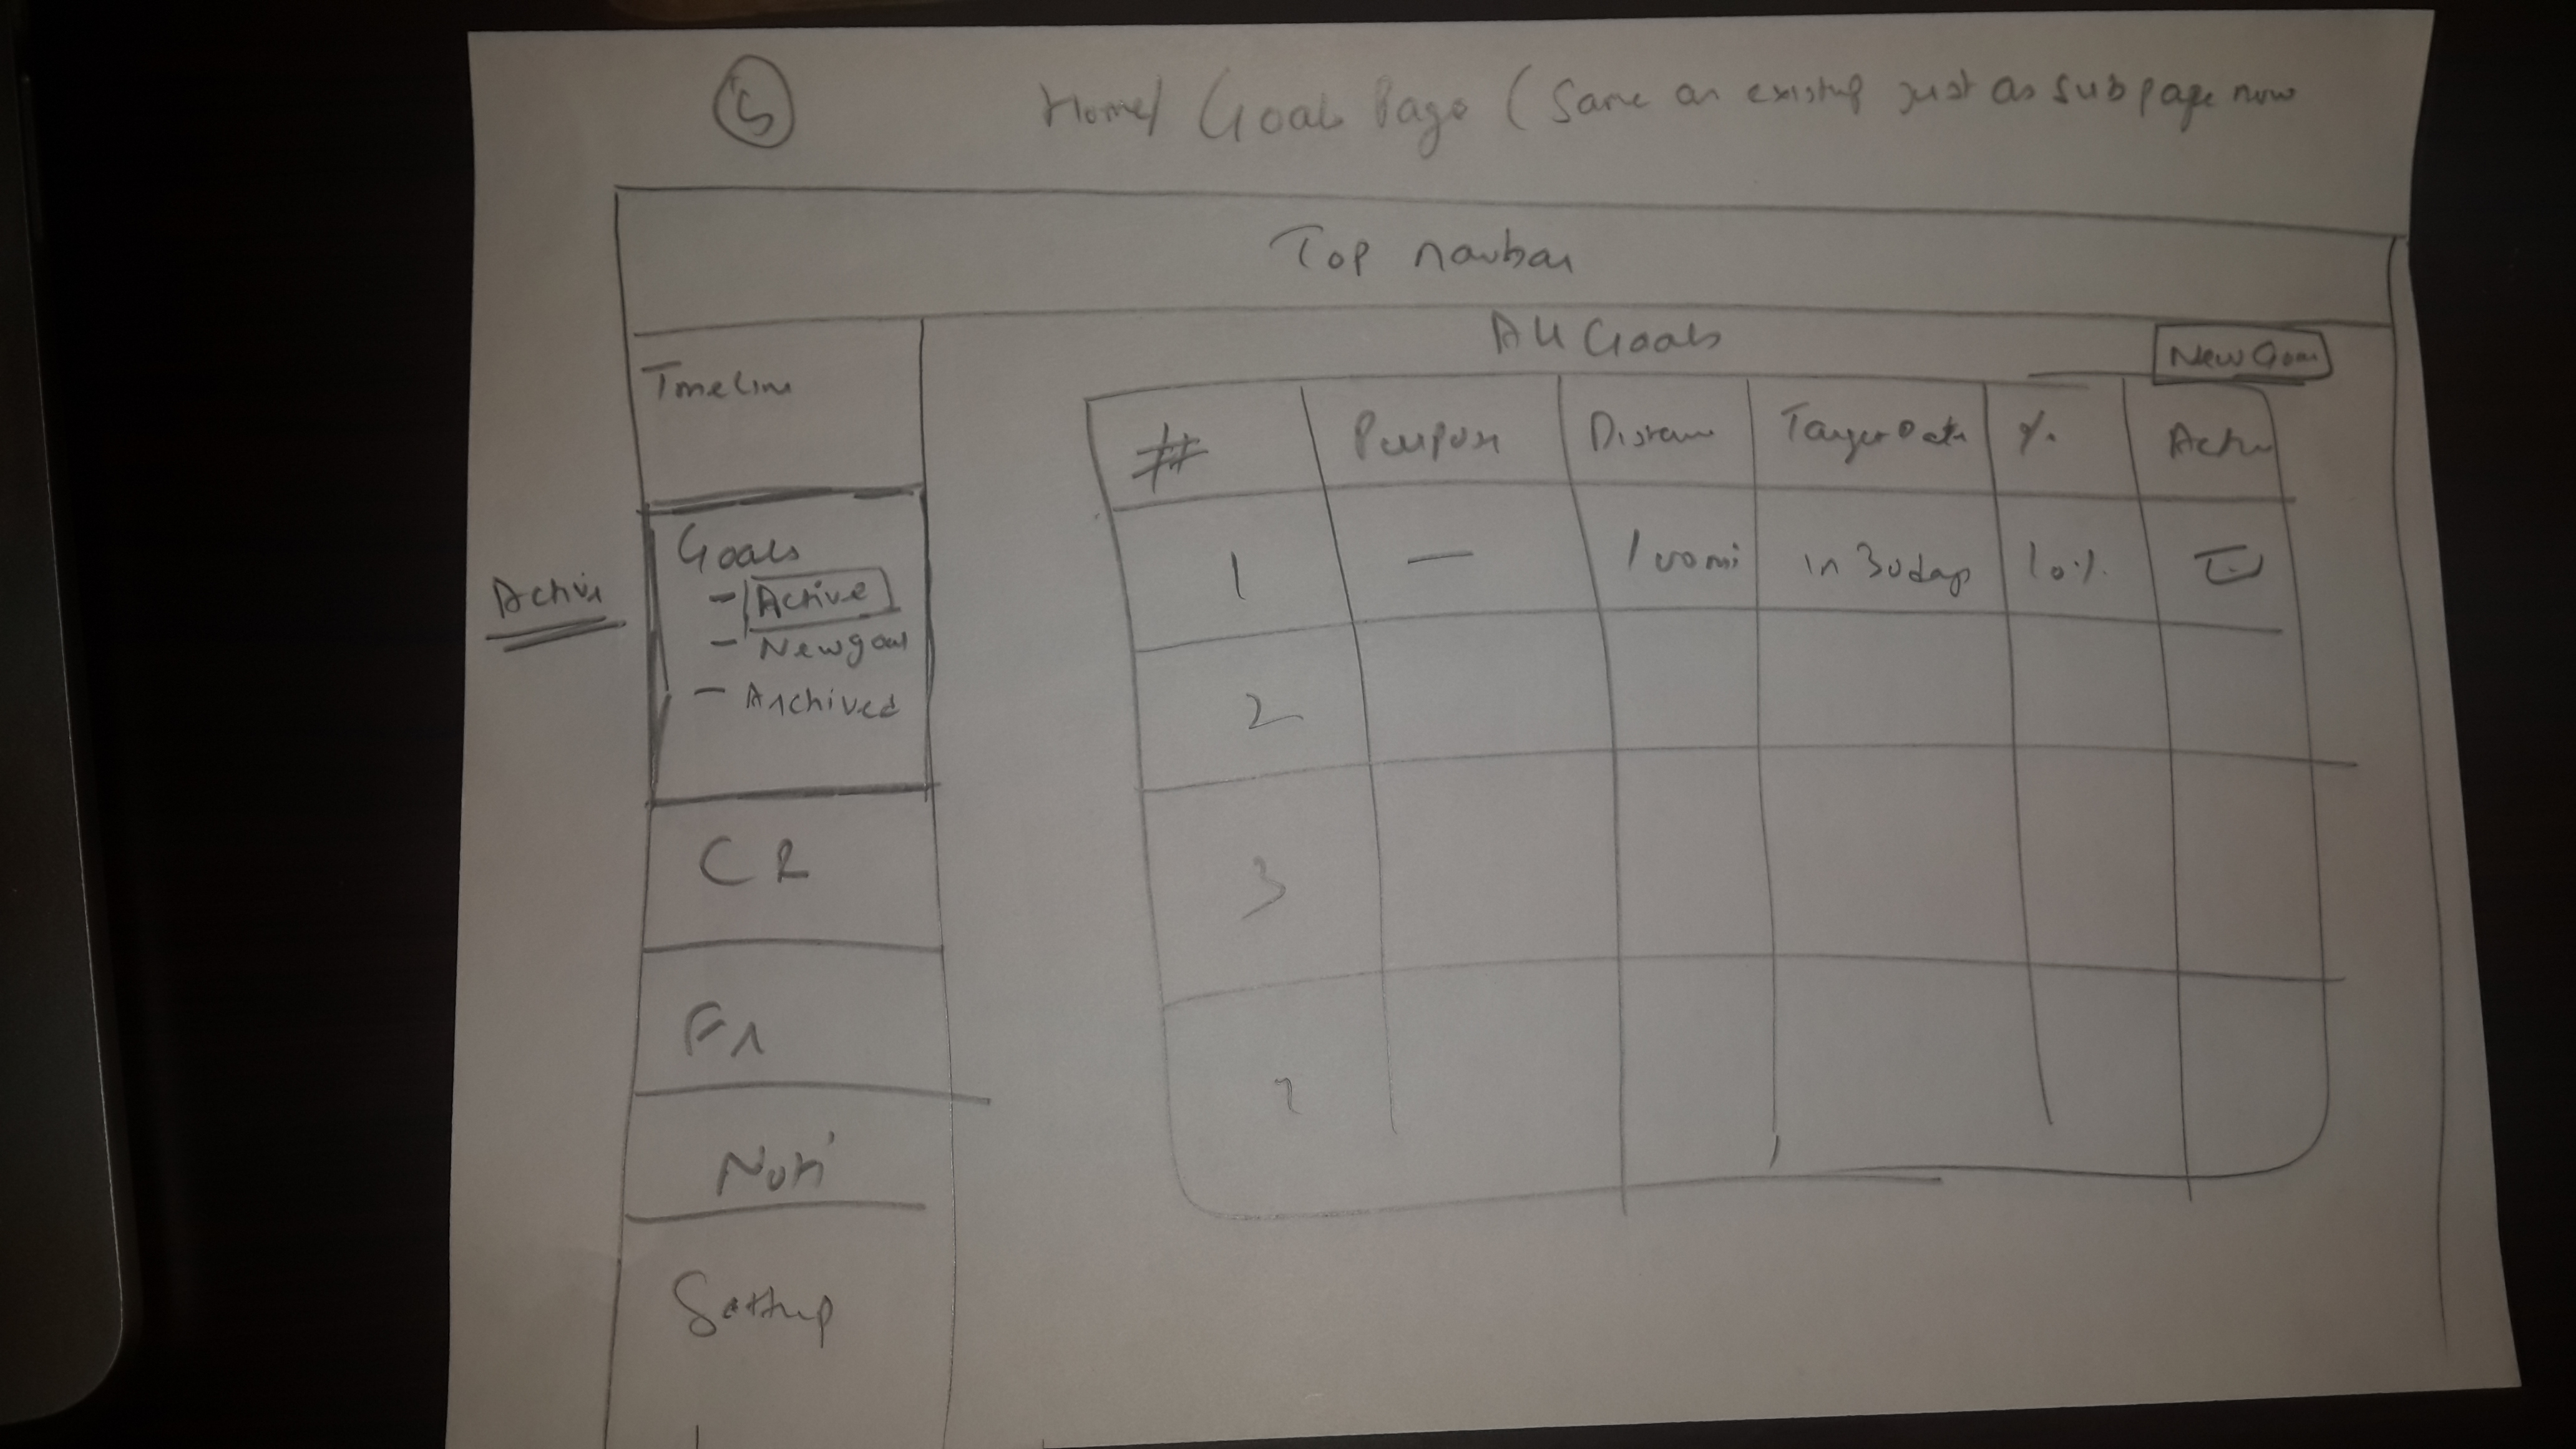 5
Home/ Goals Page (Same as existing just as subpage now
Top navbar
All Goals
New Goal
Timeline
Goals
- Active
- New goal
- Archived
Active
CR
Fr
Noti
Settings
# Purpose Distance Target Date % Action
1 — 100mi in 30 days 10%
2
3